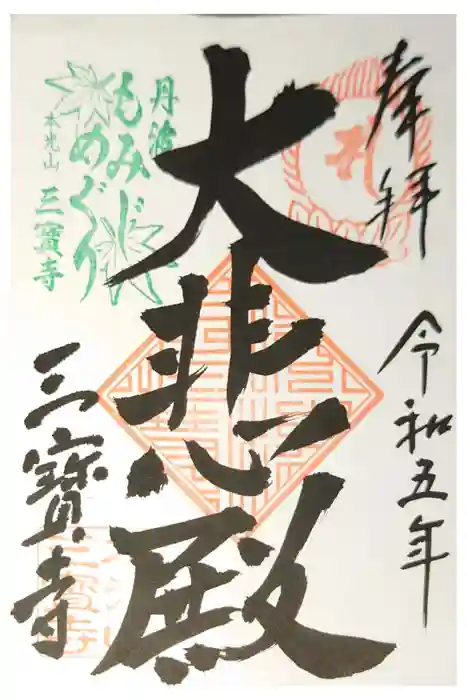 奉拝
令和五年
大悲殿
三寳寺
丹波
もみじ
めぐり
本光山
三寳寺